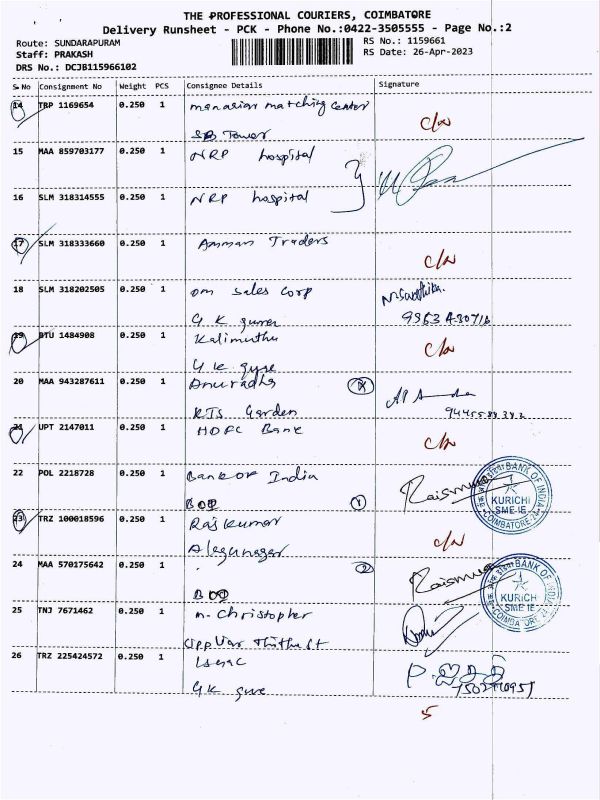 THE PROFESSIONAL COURIERS, COIMBATORE
Delivery Runsheet - PCK - Phone No.:0422-3505555 - Page No.:2
Route: SUNDARAPURAM RS No.: 1159661
Staff: PRAKASH RS Date: 26-Apr-2023
DRS No.: DCJB115966102
S No Consignment No Weight PCS Consignee Details Signature
14 TRP 1169654 0.250 1 matching center
SB Tower
15 MAA 859703177 0.250 1 NRP hospital
16 SLM 318314555 0.250 1 NRP hospital
17 SLM 318333660 0.250 1 Amman Traders
18 SLM 318202505 0.250 1 om sales corp
G K
19 BTU 1484908 0.250 1 Kalimuthu
G K
20 MAA 943287611 0.250 1 Anuradha
RJS Garden
21 UPT 2147011 0.250 1 HDFC Bank
22 POL 2218728 0.250 1 Bank OF India
BOI 1
BANK OF INDIA
KURICHI
SME IE
COIMBATORE
23 TRZ 100018596 0.250 1 Raj Kumar
Alagunagar
24 MAA 570175642 0.250 1 2
BOI
BANK OF INDIA
KURICHI
SME IE
COIMBATORE
25 TNJ 7671462 0.250 1 n. Christopher
26 TRZ 225424572 0.250 1 Isaac
GK
5